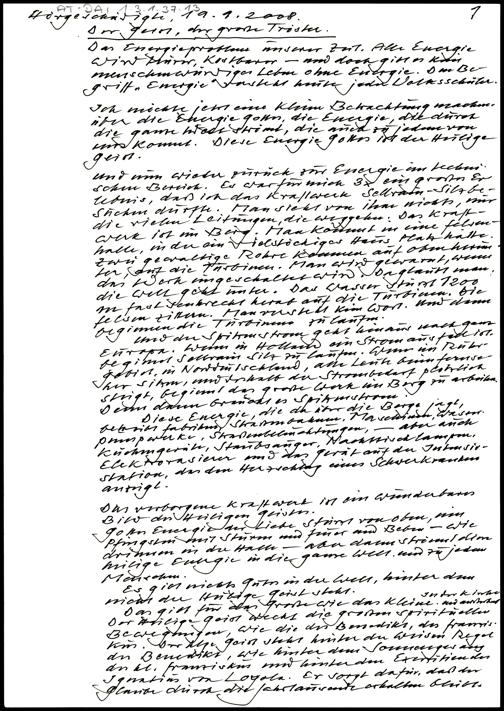 AT-DAI 1.3.1.37.13
Hörgeschädigte, 19.1.2008. 1
Der Geist, der große Tröster.
Das Energieproblem unserer Zeit. Alle Energie
wird teurer, kostbarer – und doch gibt es kein
menschenwürdiges Leben ohne Energie. Den Be-
griff „Energie" versteht heute jeder Volksschüler.
Ich möchte jetzt eine kleine Betrachtung machen
über die Energie Gottes, die Energie, die durch
die ganze Welt strömt, die auch zu jedem von
uns kommt. Diese Energie Gottes ist der Heilige
Geist.
Und nun wieder zurück zur Energie im techni-
schen Bereich. Es war für mich ein großes Er-
lebnis, daß ich das Kraftwerk Sellrain-Silz be-
suchen durfte. Man sieht von ihm nichts, nur
die vielen Leitungen, die weggehen. Das Kraft-
werk ist im Berg. Man kommt in eine Felsen-
halle, in der ein vielstöckiges Haus Platz hätte.
Zwei gewaltige Rohre kommen von oben herun-
ter, auf die Turbinen. Man wird gewarnt, wenn
das Werk eingeschaltet wird. Da glaubt man,
die Welt geht unter. Das Wasser stürzt 1200
m fast senkrecht herab auf die Turbinen. Die
Felsen zittern. Man versteht kein Wort. Und dann
beginnen die Turbinen zu laufen.
Und der Spitzenstrom geht hinaus nach ganz
Europa. Wenn in Holland ein Strom ausfällt ist,
beginnt Sellrain Silz zu laufen. Wenn im Ruhr-
gebiet, in Norddeutschland, alle Leute beim Fernse-
her sitzen, und deshalb der Strombedarf plötzlich
steigt, beginnt das große Werk im Berg zu arbeiten.
Denn dann braucht es Spitzenstrom.
Diese Energie, die da über die Berge jagt,
betreibt Fabriken, Straßenbahnen, Maschinen, Wasser-
pumpwerke, Straßenbeleuchtungen, – aber auch
Küchengeräte, Staubsauger, Nachttischlampen,
Elektrorasierer und das Gerät auf der Intensiv-
station, das den Herzschlag eines Schwerkranken
anzeigt.
Das verborgene Kraftwerk ist ein wunderbares
Bild des Heiligen Geistes.
Gottes Energie der Liebe stürzt von oben, wie
Pfingsten mit Sturm und Feuer und Beben – wie
drinnen in der Halle – aber dann strömt diese
heilige Energie in die ganze Welt und zu jedem
Menschen.
Es gibt nichts Gutes in der Welt, hinter dem
nicht der Heilige Geist steht.
Das gilt für das Große wie das Kleine. In der Kirche
Der Heilige Geist weckt die großen spirituellen
Bewegungen, wie die des Benedikt, des Franzis-
kus. Der Hlge Geist steht hinter der weisen Regel
des Benedikt, wie hinter dem Sonnengesang
des hl. Franziskus und hinter den Exerzitien des
Ignatius von Loyola. Er sorgt dafür, daß der
Glaube durch die Jahrtausende erhalten bleibt.